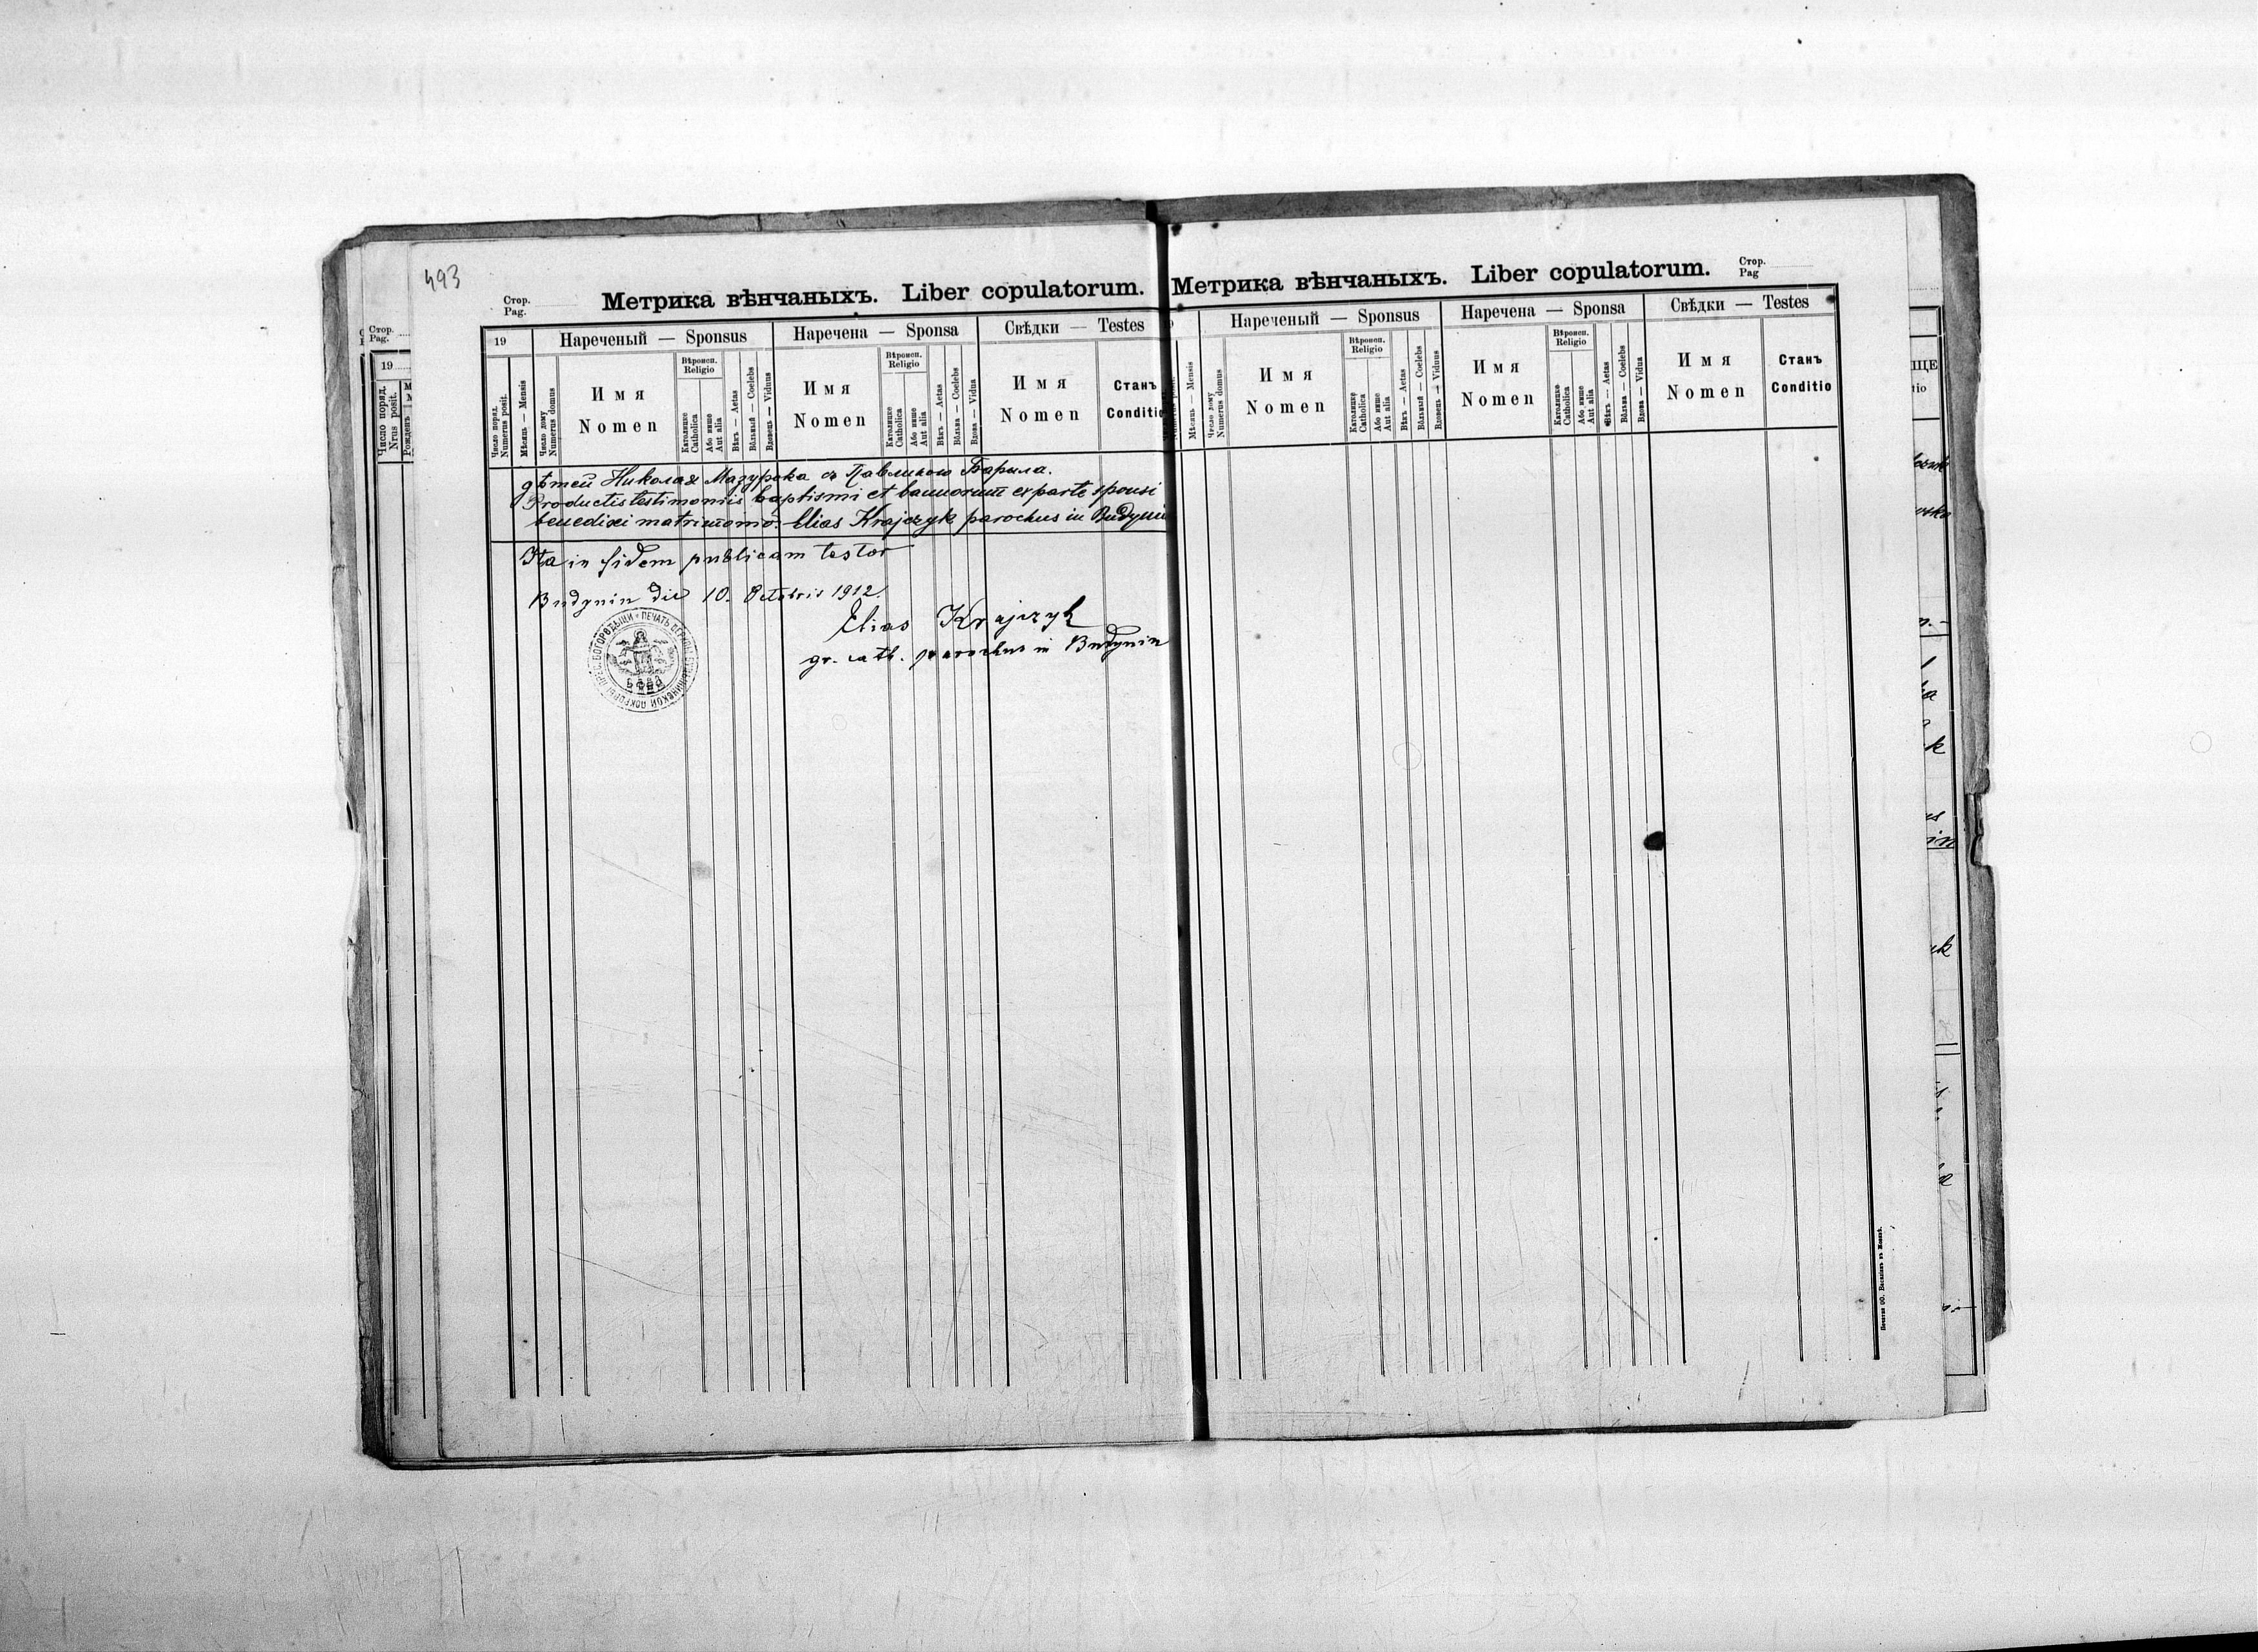 493
Стор.
Pag.
Метрика вѣнчаныхъ. Liber copulatorum.
19
Нареченый — Sponsus
Наречена — Sponsa
Свѣдки — Testes
Число поряд.
Numerus posit.
Мѣсяць — Mensis
Число дому
Numerus domus
Имя
Nomen
Вѣроисп.
Religio
Католицке
Catholica
Або инше
Aut alia
Вѣкъ — Aetas
Вôльный — Coelebs
Вдовець — Viduus
Имя
Nomen
Вѣроисп.
Religio
Католицке
Catholica
Або инше
Aut alia
Вѣкъ — Aetas
Вôльна — Coelebs
Вдова — Vidua
Имя
Nomen
Станъ
Conditio
дѣтей Николая Мазурока съ Павлиною Барыла.
Productis testimoniis baptismi et bannorum ex parte sponsi
benedixi matrimonio. Elias Krajczyk parochus in Budynin
Ita in fidem publicam testor
Budynin die 10. Octobris 1912.
Elias Krajczyk
gr. cath. parochus in Budynin
Метрика вѣнчаныхъ. Liber copulatorum.
Стор.
Pag
Нареченый — Sponsus
Наречена — Sponsa
Свѣдки — Testes
Мѣсяць — Mensis
Число дому
Numerus domus
Имя
Nomen
Вѣроисп.
Religio
Католицке
Catholica
Або инше
Aut alia
Вѣкъ — Aetas
Вôльный — Coelebs
Вдовець — Viduus
Имя
Nomen
Вѣроисп.
Religio
Католицке
Catholica
Або инше
Aut alia
Вѣкъ — Aetas
Вôльна — Coelebs
Вдова — Vidua
Имя
Nomen
Станъ
Conditio
Стор.
Pag.
19
Число поряд.
Nrus posit.